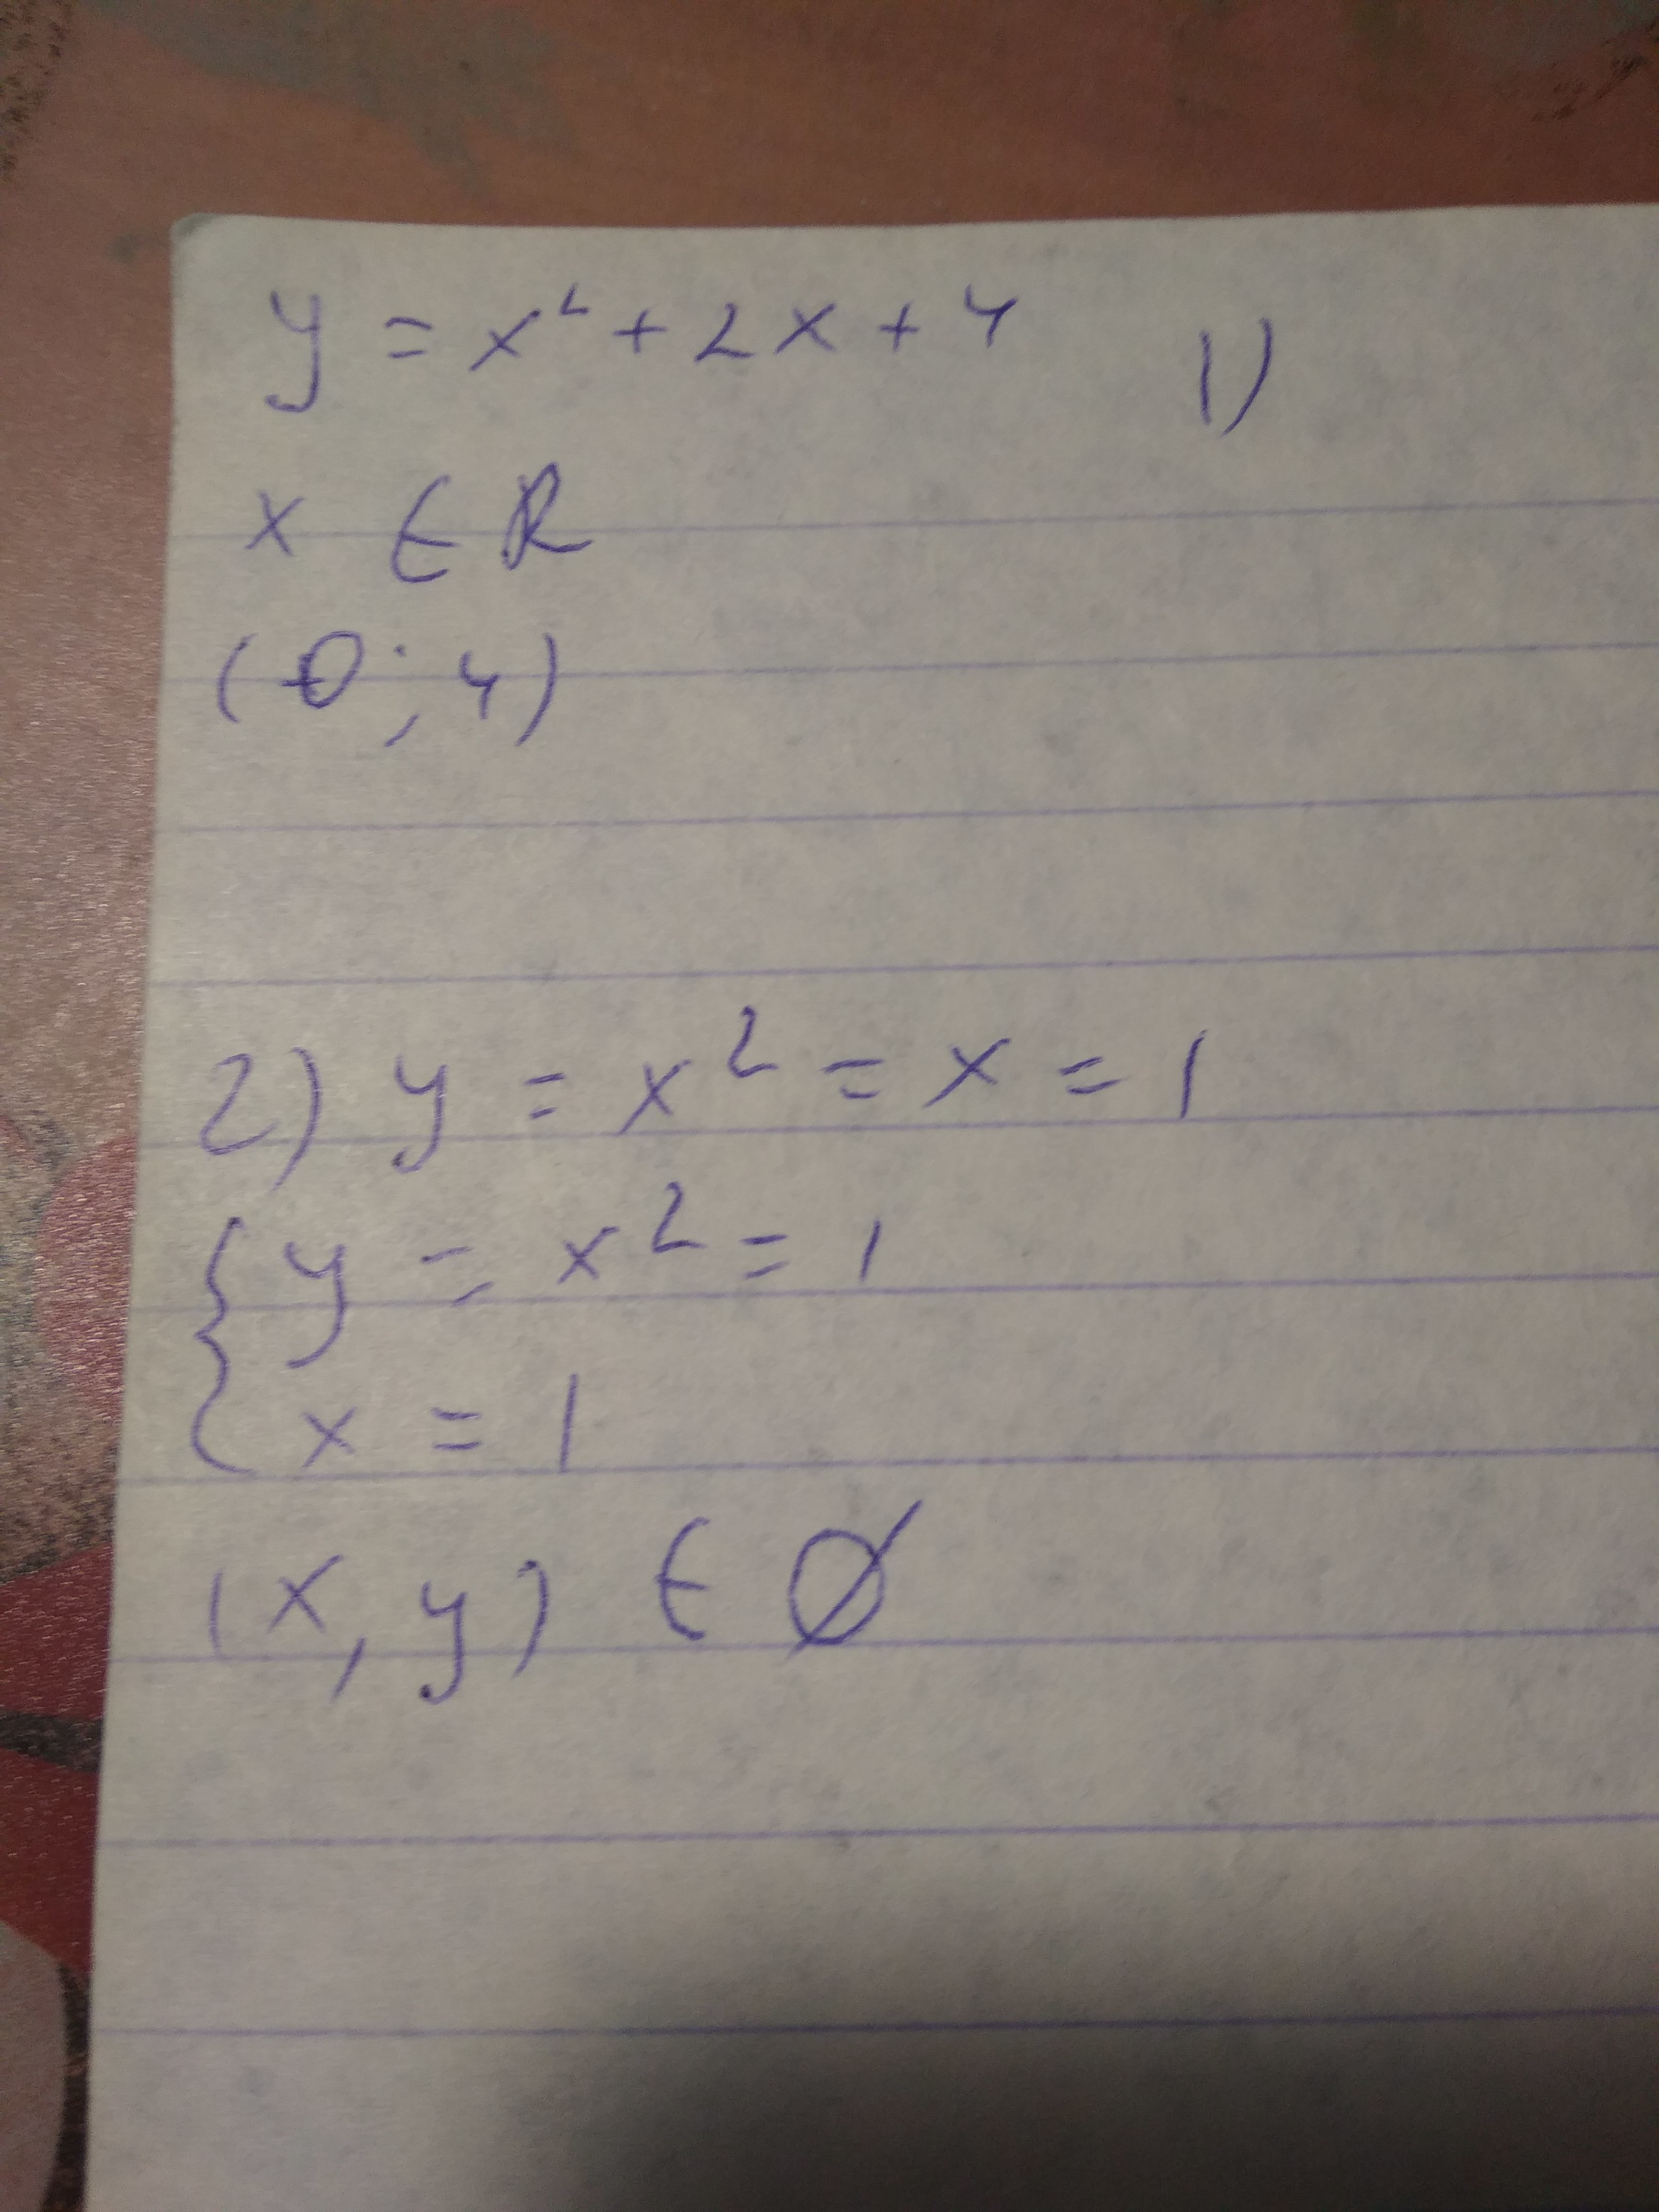 y = x² + 2x + 4 1)
x ∈ R
(0; 4)
2) y = x² = x = 1
{ y = x² = 1
x = 1
(x, y) ∈ ∅